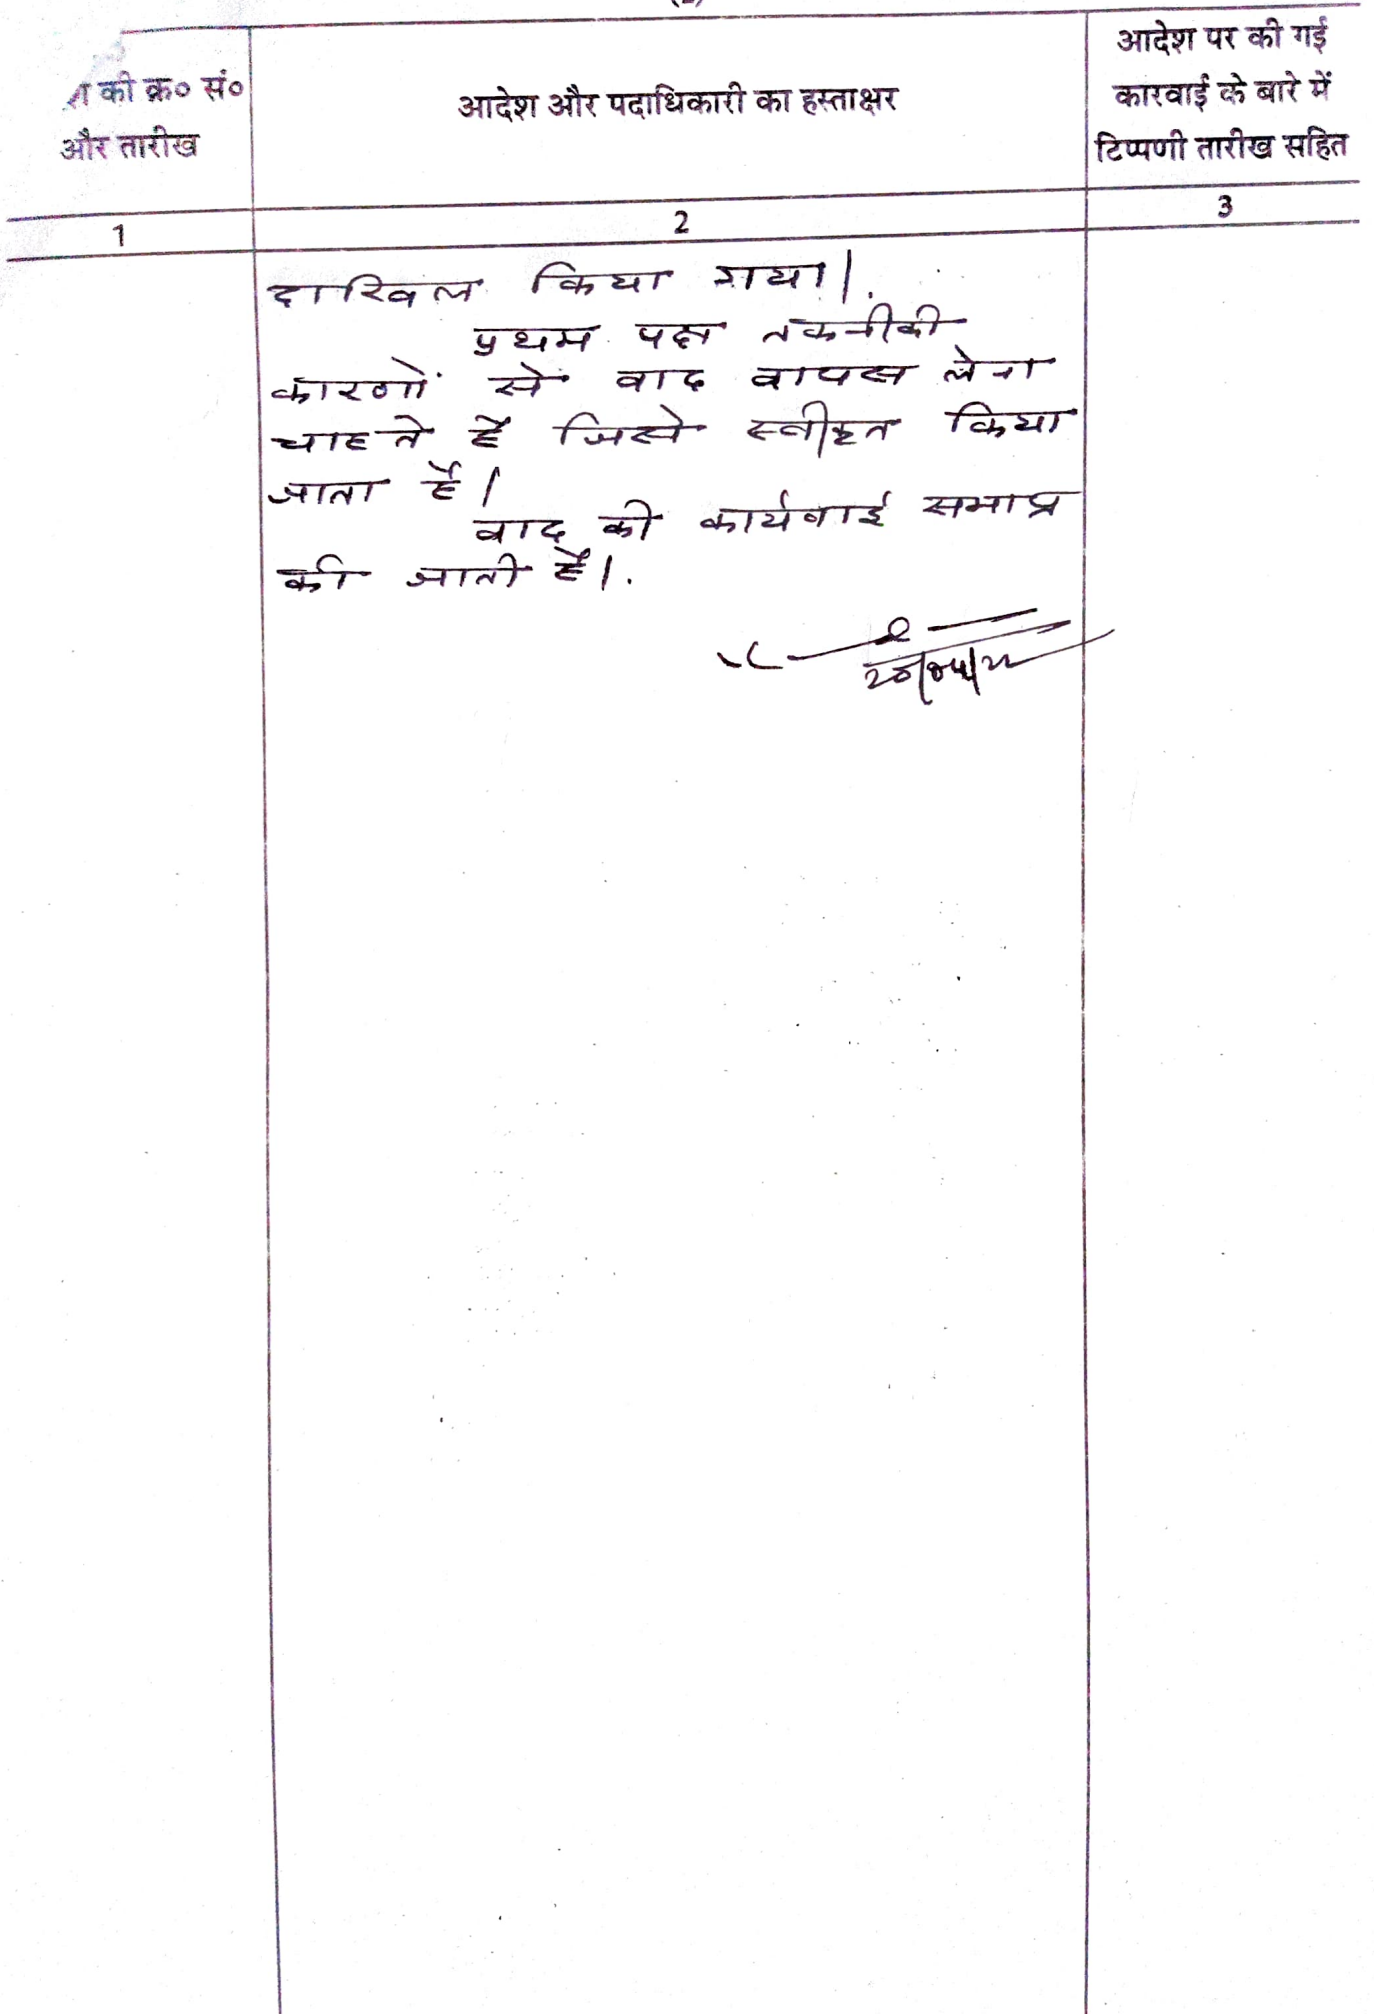 की क्र० सं०
और तारीख
आदेश और पदाधिकारी का हस्ताक्षर
आदेश पर की गई
कारवाई के बारे में
टिप्पणी तारीख सहित
1
2
3
दाखिल किया गया।
प्रथम पक्ष तकनीकी
कारणों से वाद वापस लेना
चाहते हैं जिसे स्वीकृत किया
जाता है।
वाद की कार्यवाई समाप्त
की जाती है।